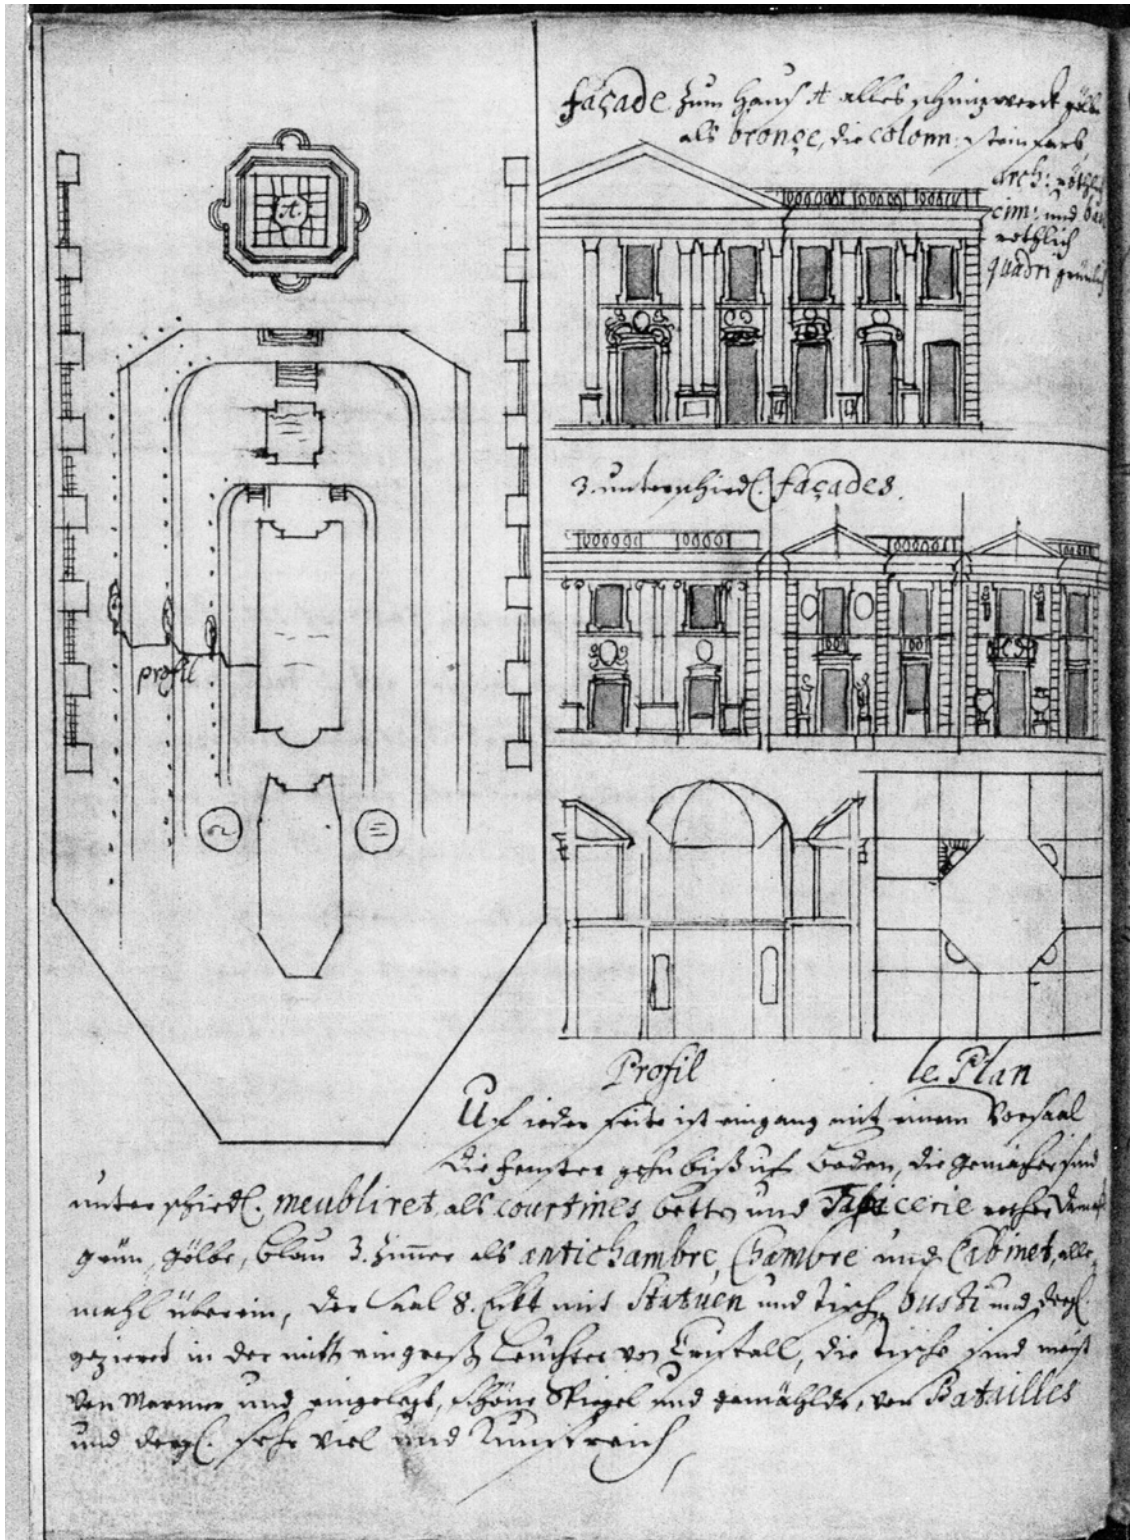 façade zum Hauß A alles schnizwerck
als bronçe, die colonn: steinfarb
arch: röthl
cim: und
rothlich
quadri grünlich
A.
3. unterschiedl. façades.
profil
Profil
le Plan
Uf ieder seite ist eingang mit einem Vorsaal
die fenster gehn biß uf boden, die gemächer sind
unterschiedl. meubliret, als courtines bette und Tapicerie rother Damast
grün, gölbe, blau 3. Zimmer als antichambre, Chambre und Cabinet, alle
mahl überein, der Saal 8.Eckt mit Statuen und tisch, busti und dergl.
gezieret in der mitt ein groß Leuchter von Cristall, die tische sind meist
von Marmor und eingelegt, schöne Spiegel und gemählde, von Batailles
und dergl. sehr viel und Kunstreich